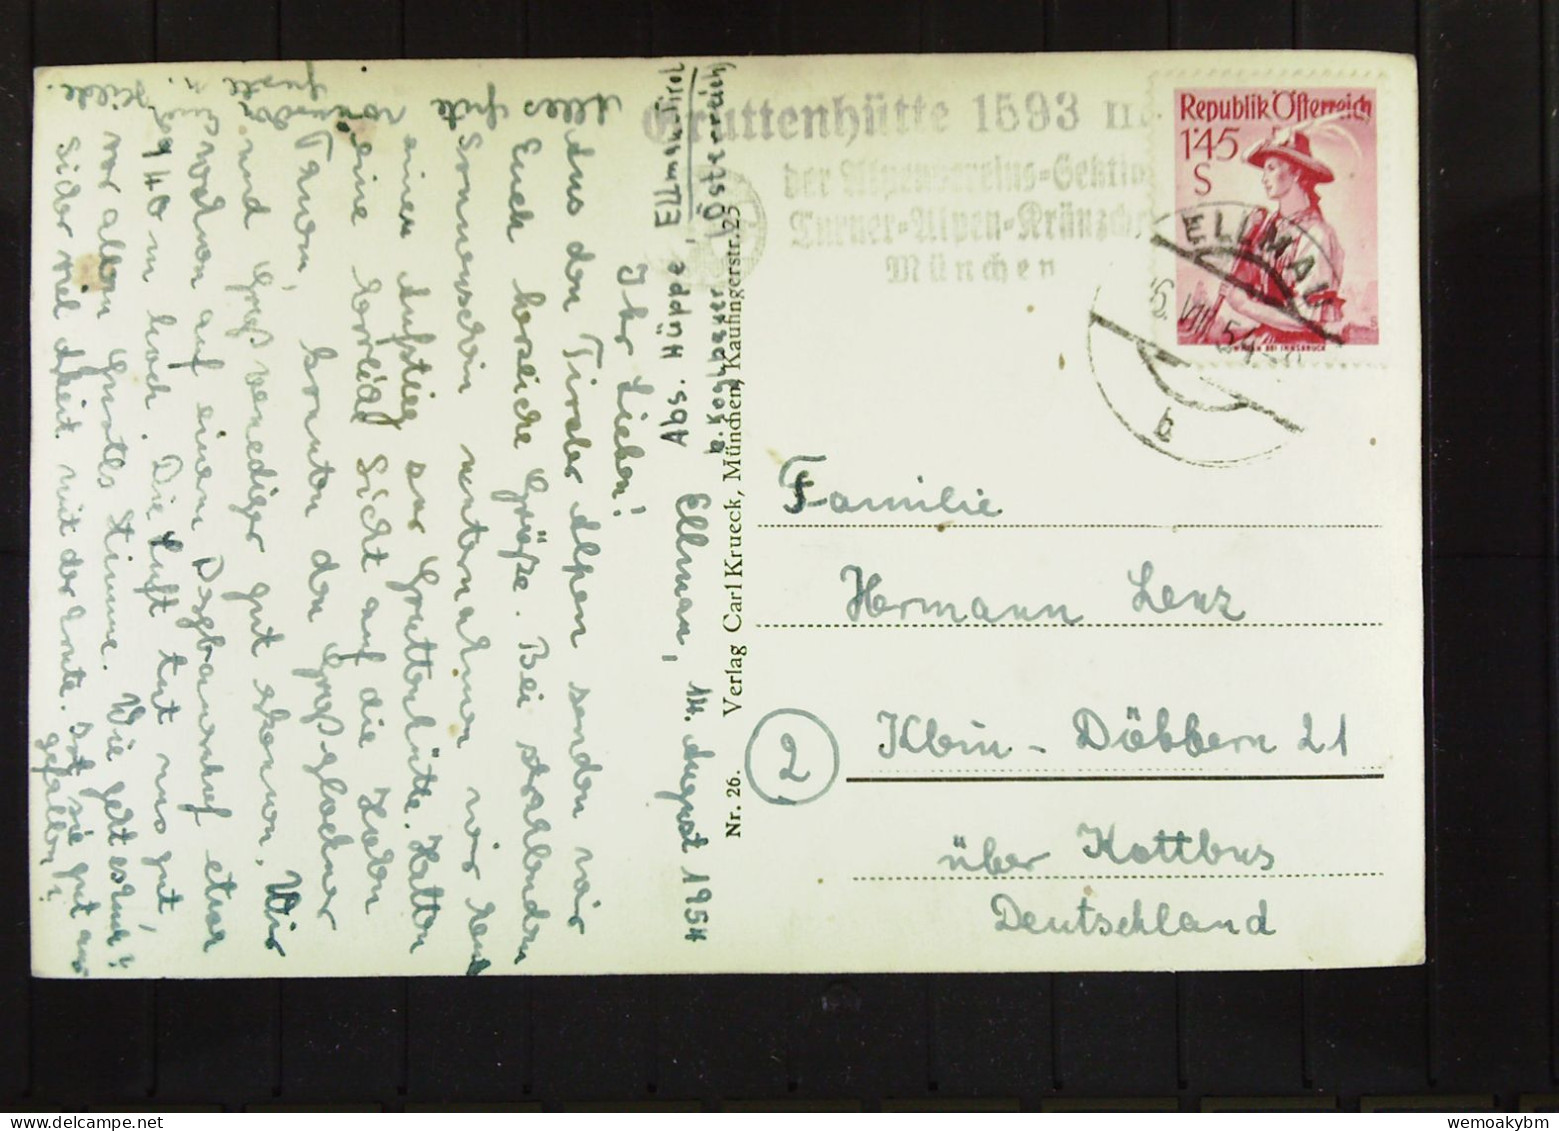 Gruttenhütte 1593 m
der Alpenvereins-Sektion
Turner-Alpen-Kränzchen
München
Republik Österreich
1'45
S
ELLMAU
VIII 54
b
Familie
Hermann Lenz
Klein - Döbbern 21
2
über Kottbus
Deutschland
Nr. 26. Verlag Carl Krueck, München, Kaufingerstr. 25
Abs. Hüppe, Ellmau Tirol
b. Kochbauer (Österreich)
Ellmau, 14. August 1954
Ihr Lieben!
Aus den Tiroler Alpen senden wir
Euch herzliche Grüße. Bei strahlendem
Sonnenschein unternahmen wir heute
einen Aufstieg zur Gruttenhütte. Hatten
eine herrliche Sicht auf die Hohen
Tauern, konnten den Großglockner
und Großvenediger gut erkennen. Wir
wohnen auf einem Bergbauernhof etwa
940 m hoch. Die Luft tut uns gut,
vor allem Stimme. Wie geht es Euch?
Sicher viel Arbeit mit der Ernte. Ist sie gut aus
gefallen?
Alles Gute
wemoakybm